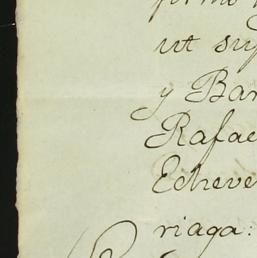 ut sup
y Bar
Rafae
Echeve
riaga: